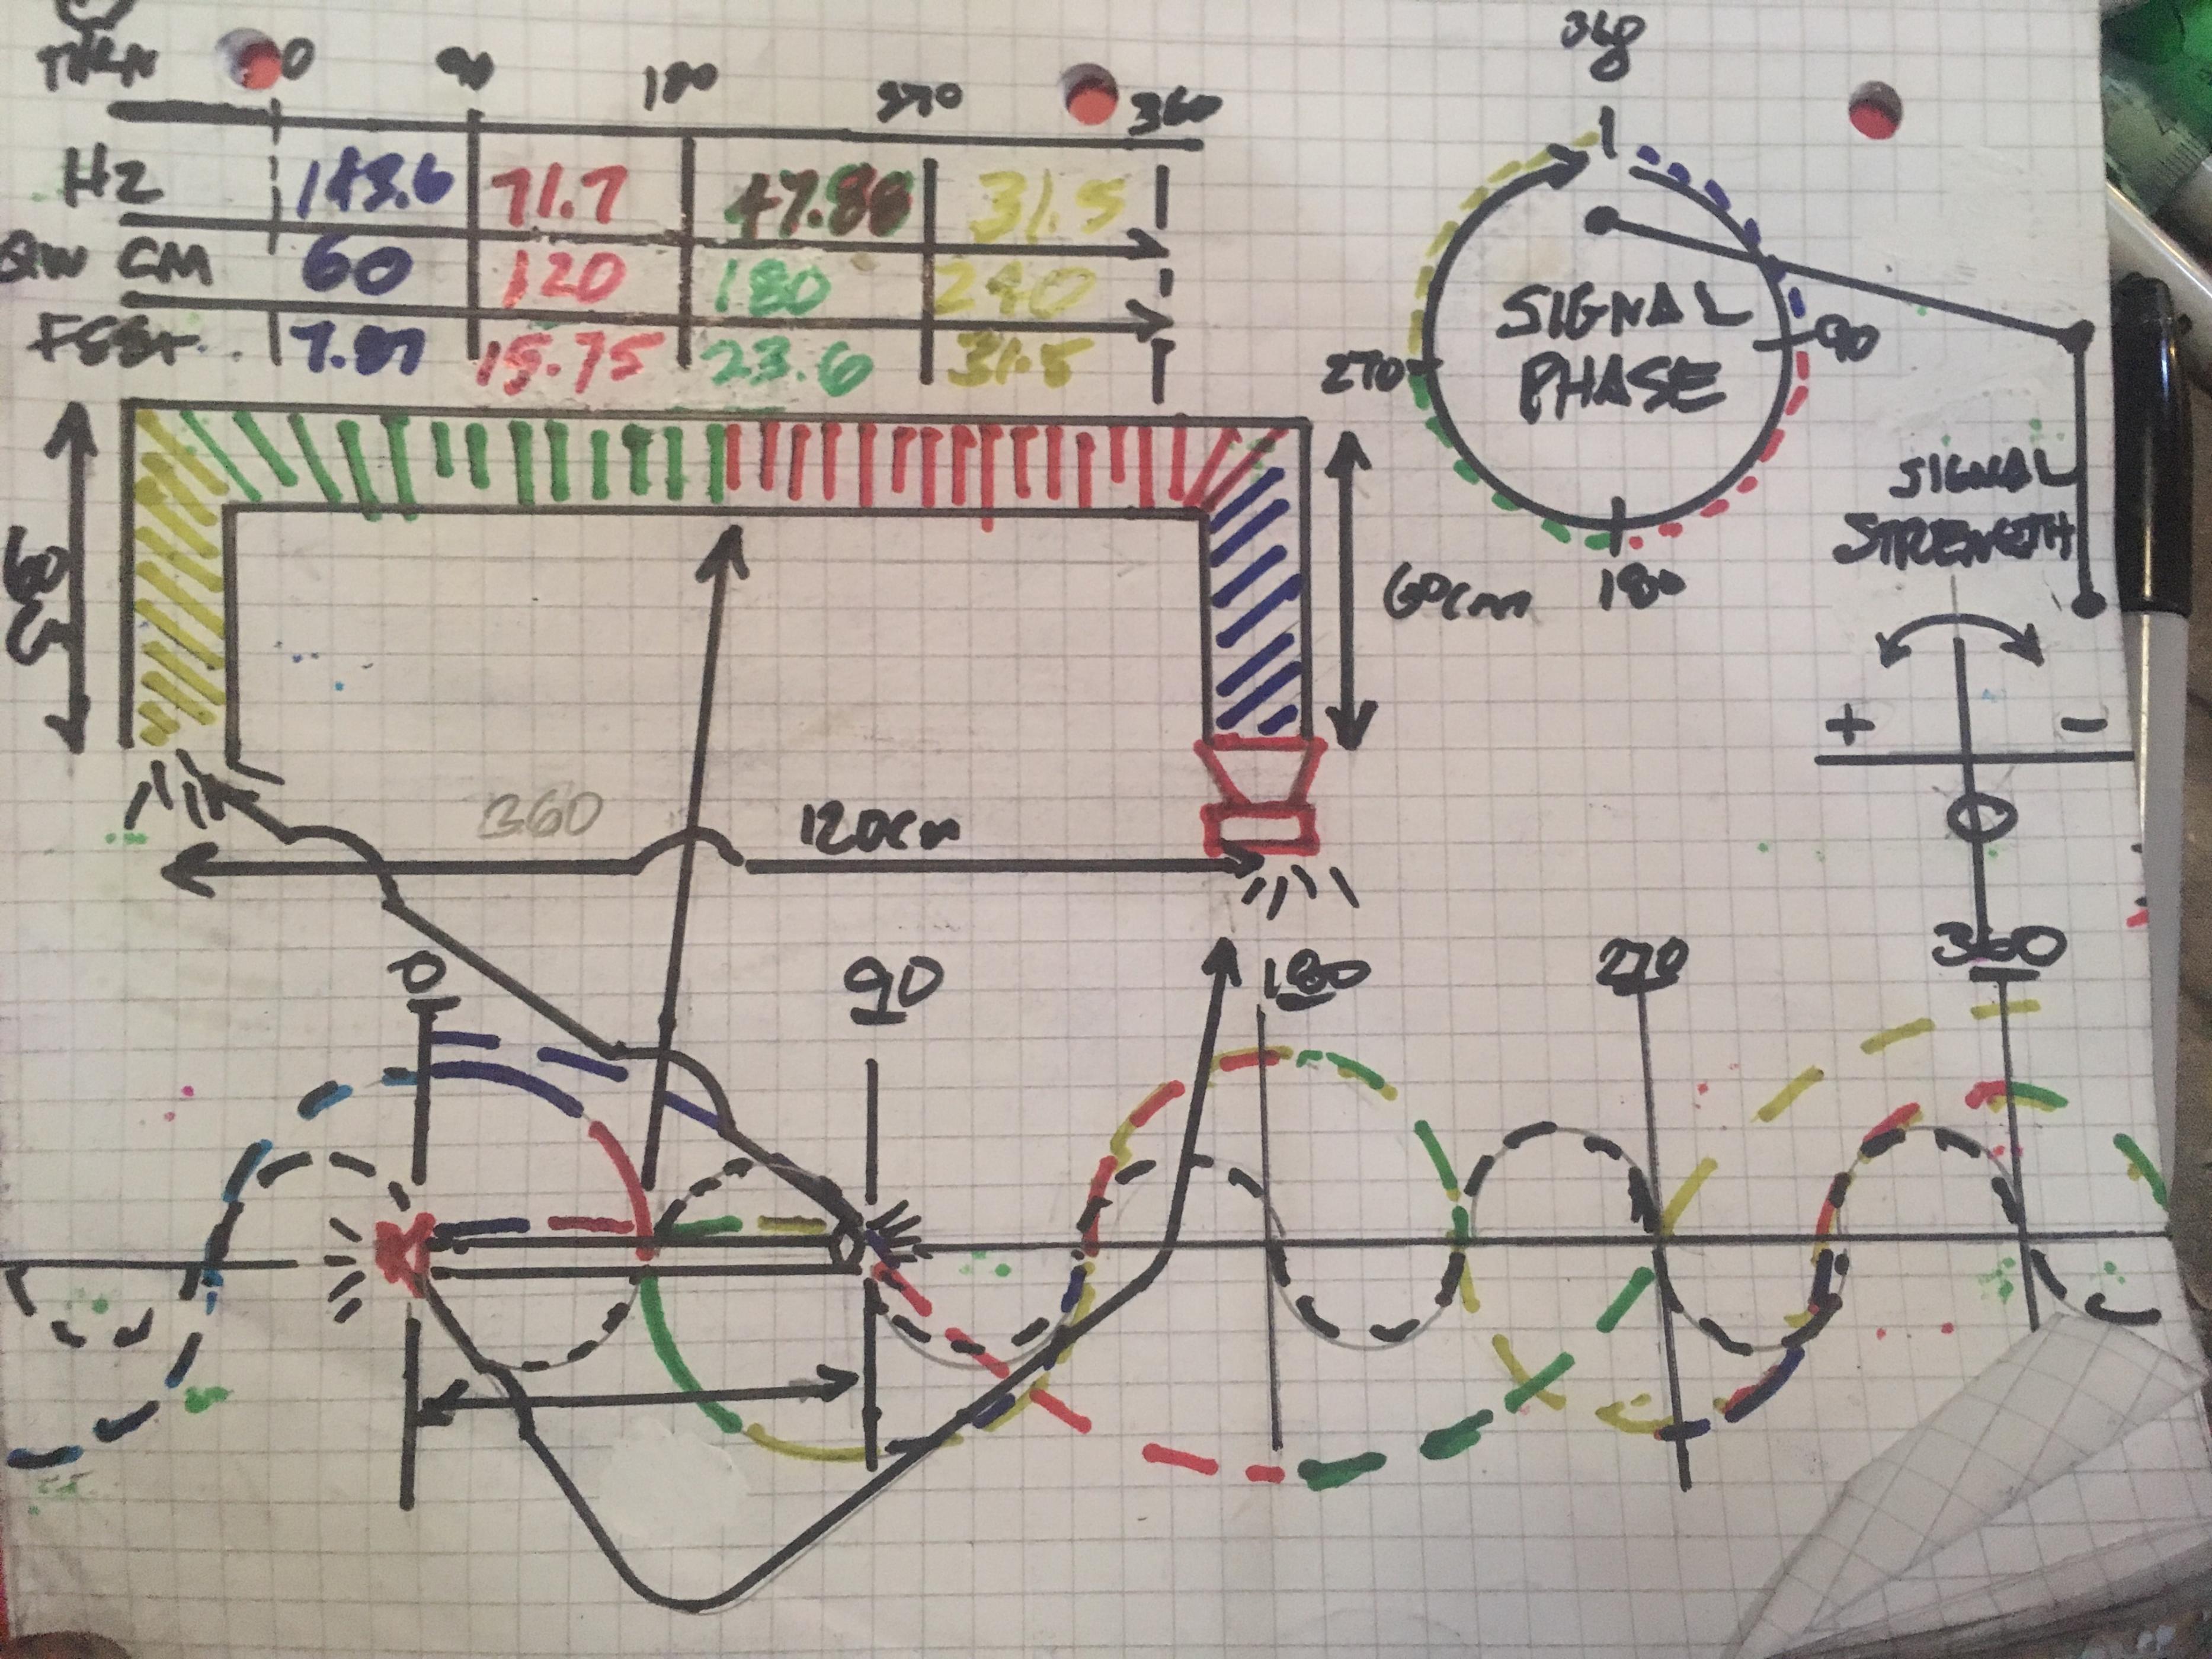 0 90 180 270 360
HZ 143.6 71.7 47.88 31.5
QW CM 60 120 180 240
FEET 7.87 15.75 23.6 31.5
360
SIGNAL
PHASE
90
270
180
SIGNAL
STRENGTH
60cm
60cm
+ -
360
120cm
0 90 180 270 360